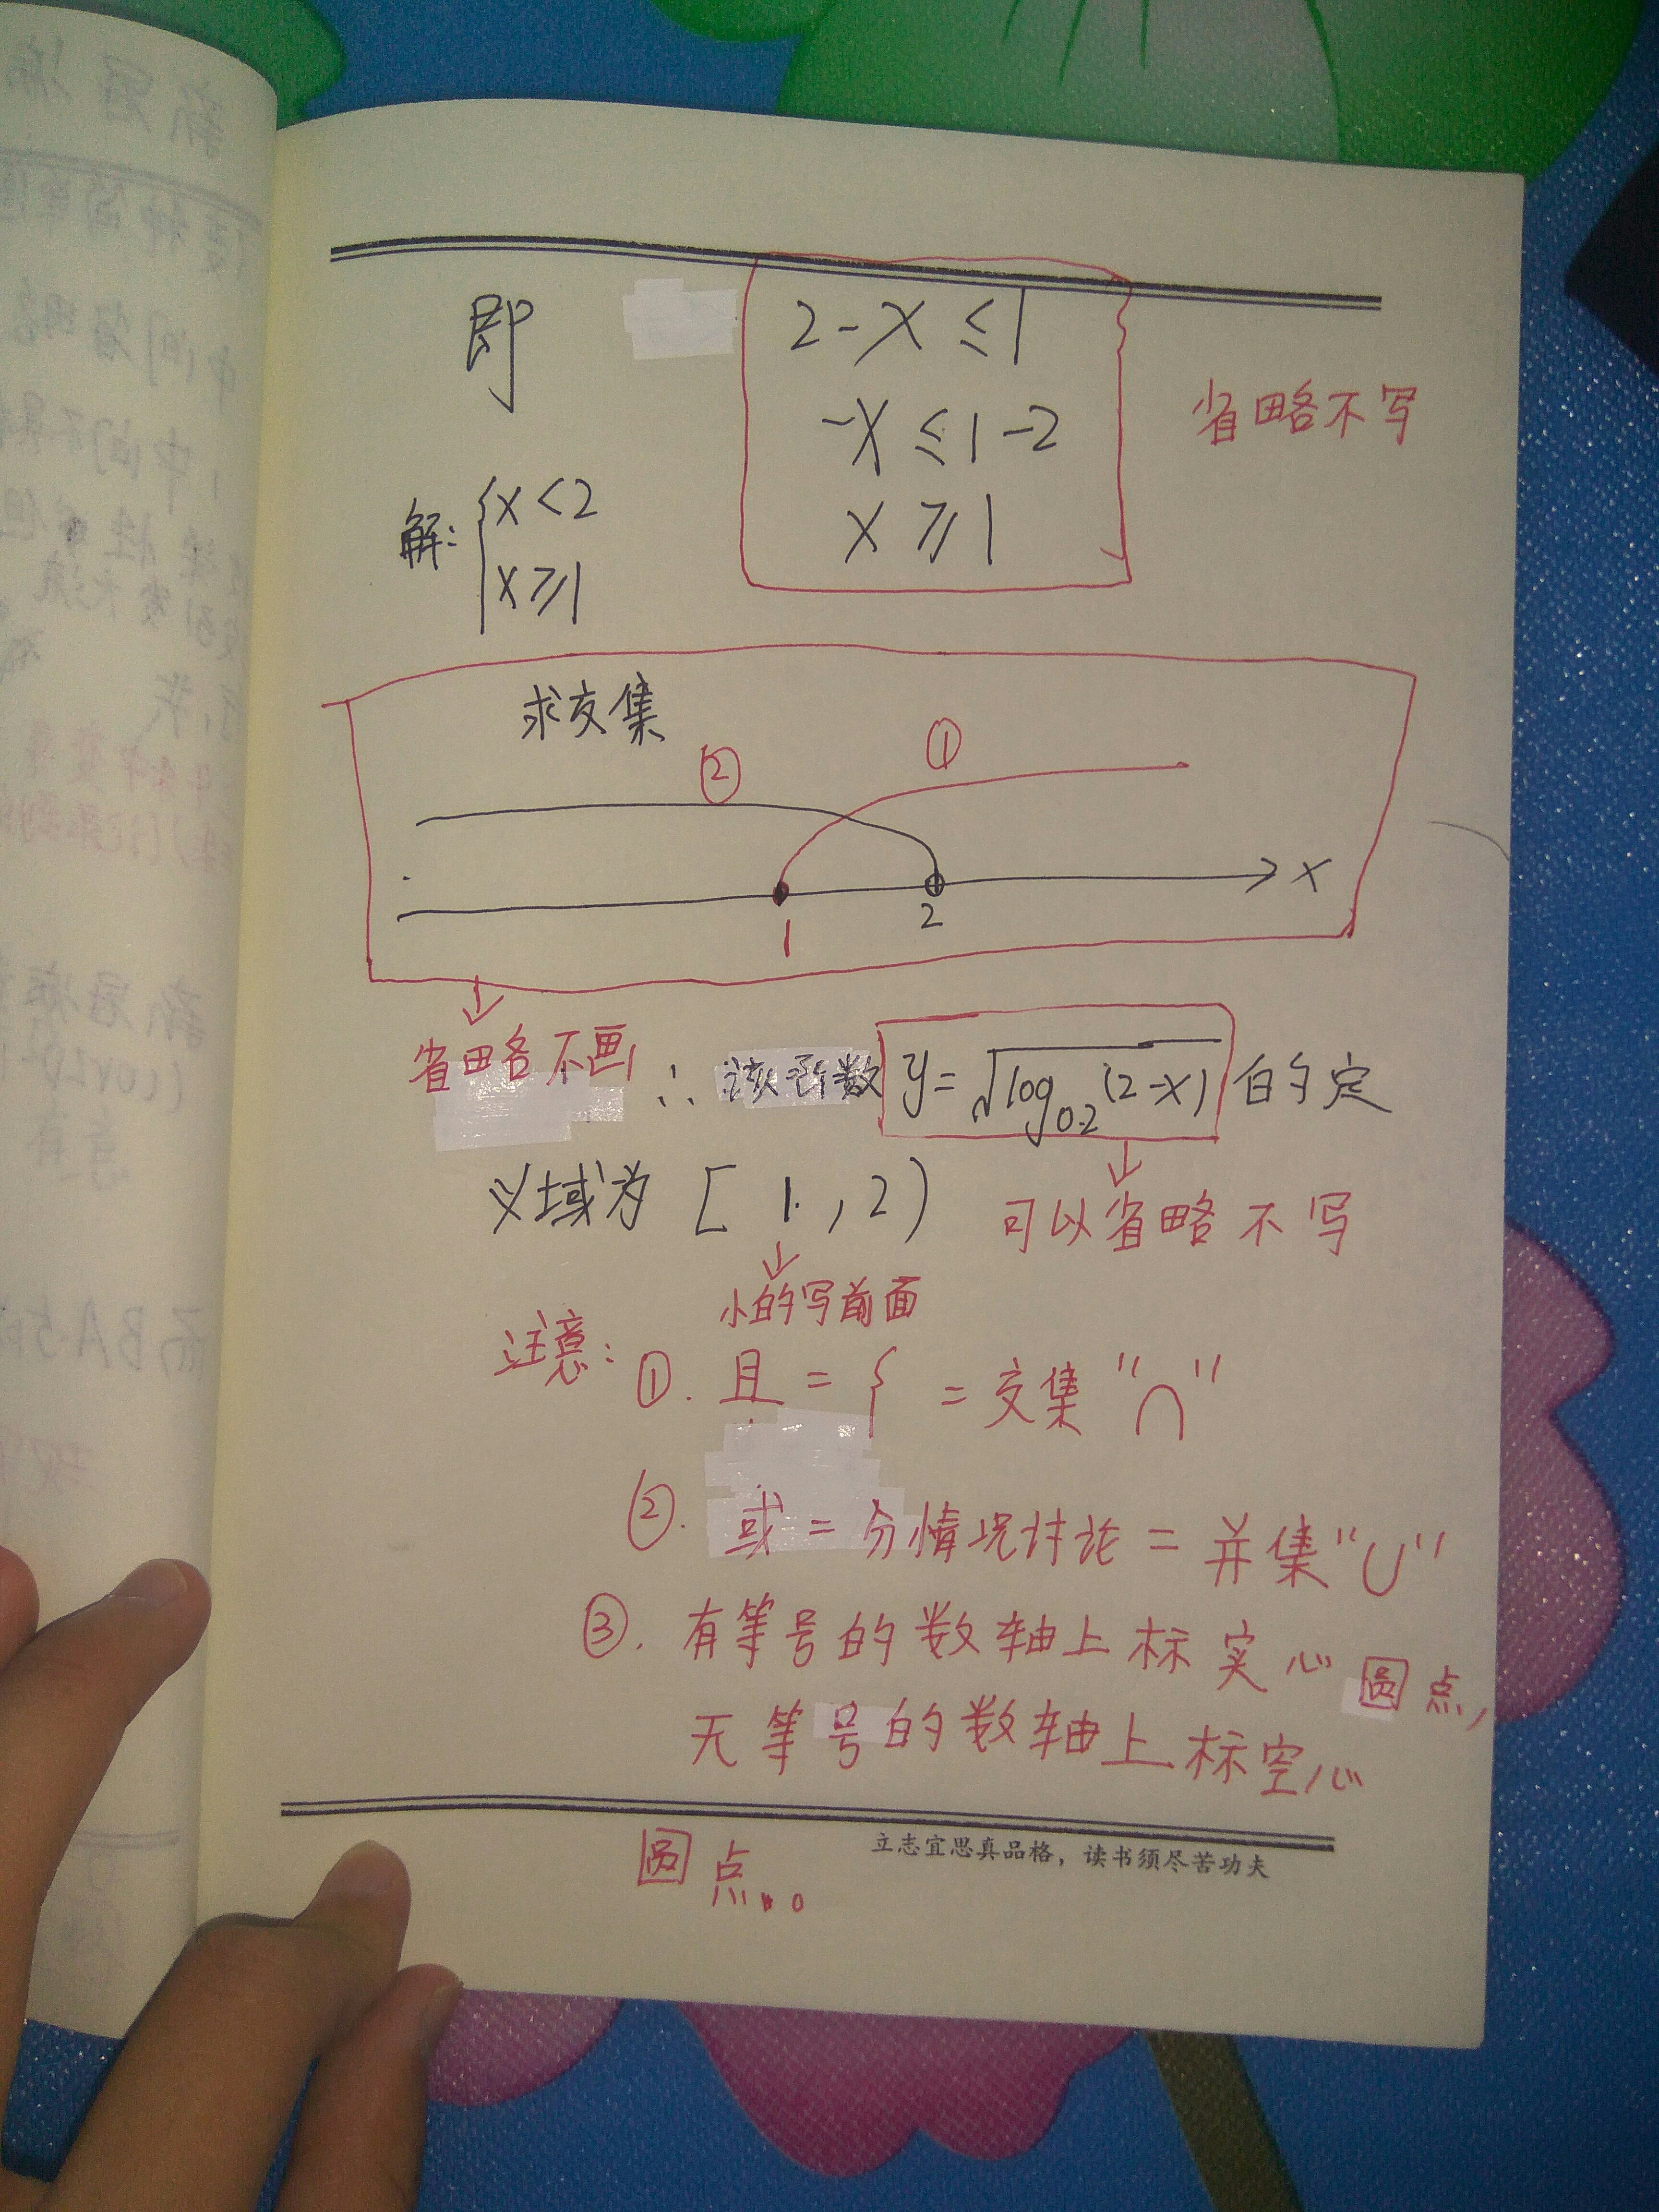 即 2-x≤1
-x≤1-2 省略不写
解:{x<2 x≥1
x≥1
求交集
② ①
x
1 2
省略不画 ∴ 该函数 y=√log0.2(2-x) 的定
义域为 [1,2) 可以省略不写
小的写前面
注意: ①. 且 = { = 交集"∩"
②. 或 = 分情况讨论 = 并集"∪"
③. 有等号的数轴上标实心圆点,
无等号的数轴上标空心
圆点。
立志宜思真品格,读书须尽苦功夫